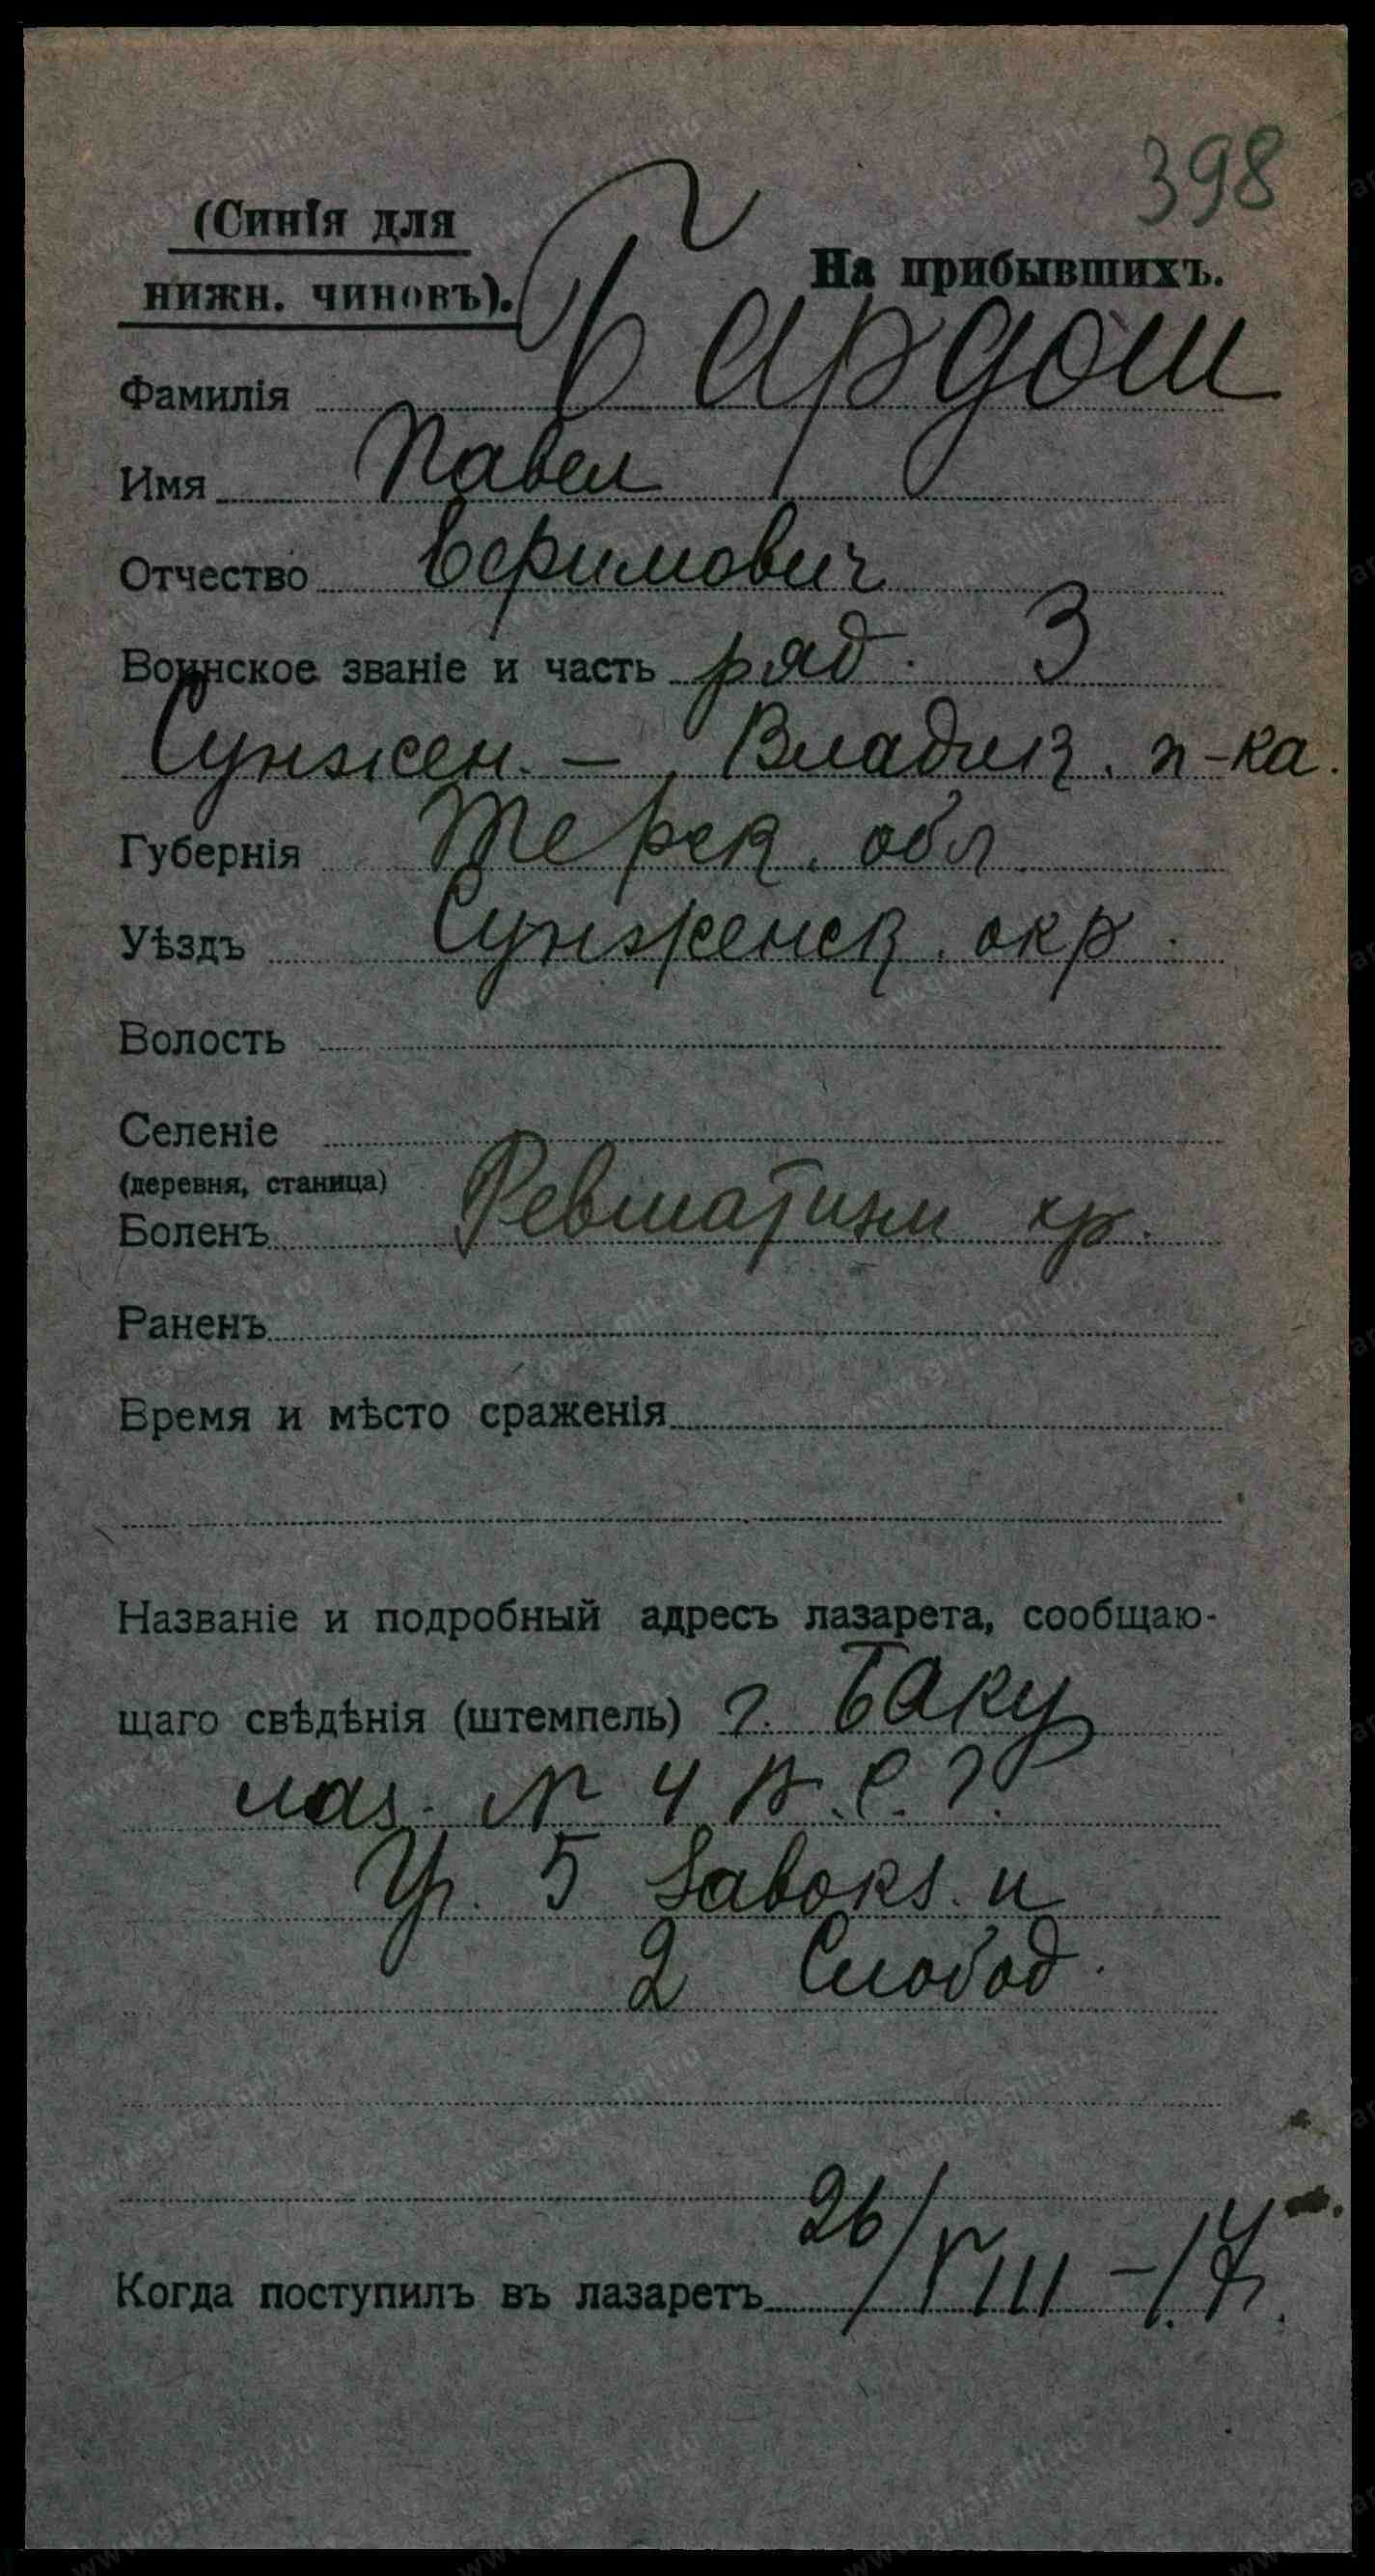 398
(Синія для
нижн. чиновъ).
На прибывшихъ.
Фамилія Бардош
Имя Павел
Отчество Ефимович
Воинское званіе и часть ряд. 3
Сунжен. – Владик. п-ка.
Губернія Терск. обл
Уѣздъ Сунженск. окр.
Волость
Селеніе
(деревня, станица)
Боленъ Ревматизм хр.
Раненъ
Время и мѣсто сраженія
Названіе и подробный адресъ лазарета, сообщаю-
щаго свѣдѣнія (штемпель) г. Баку
лаз. № 4 В.С.Г.
Уг. 5 Завокз. и
2 Слобод.
Когда поступилъ въ лазаретъ 26/VIII – 17.